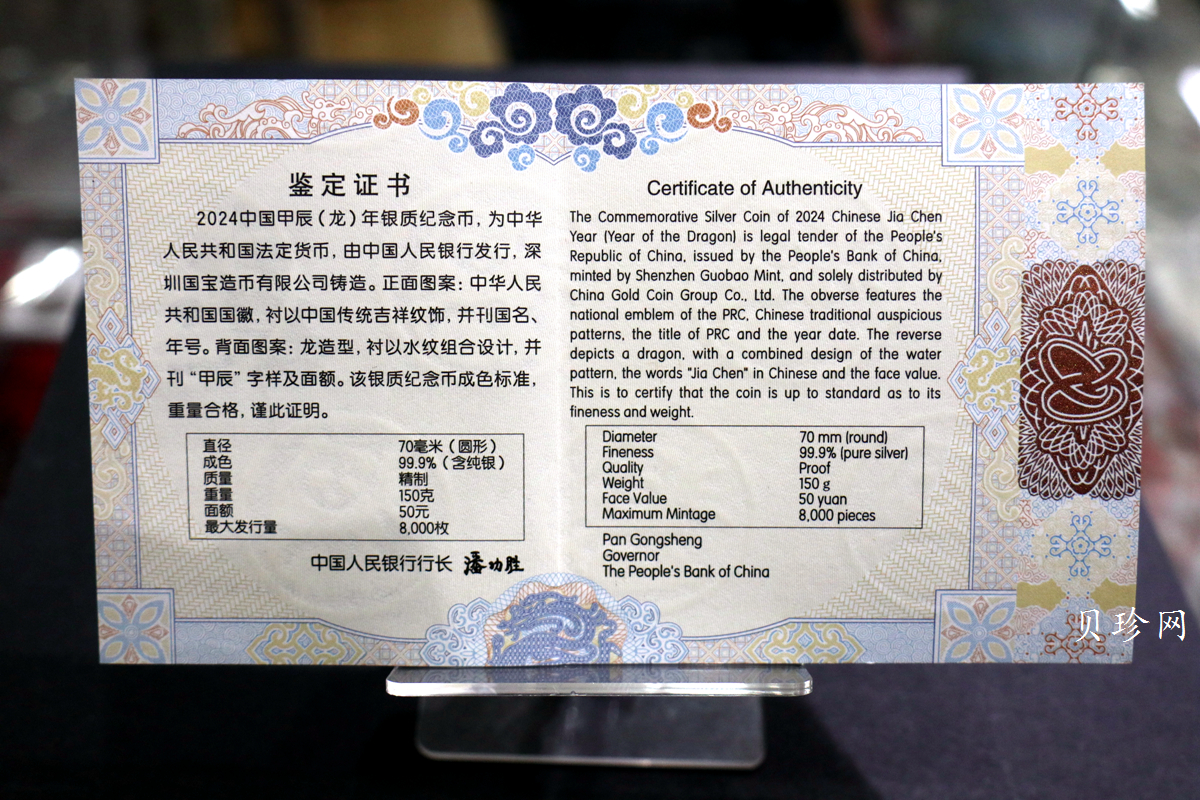 鉴定证书
2024中国甲辰(龙)年银质纪念币,为中华
人民共和国法定货币,由中国人民银行发行,深
圳国宝造币有限公司铸造。正面图案:中华人民
共和国国徽,衬以中国传统吉祥纹饰,并刊国名、
年号。背面图案:龙造型,衬以水纹组合设计,并
刊“甲辰”字样及面额。该银质纪念币成色标准,
重量合格,谨此证明。
直径 70毫米(圆形)
成色 99.9%(含纯银)
质量 精制
重量 150克
面额 50元
最大发行量 8,000枚
中国人民银行行长 潘功胜
Certificate of Authenticity
The Commemorative Silver Coin of 2024 Chinese Jia Chen
Year (Year of the Dragon) is legal tender of the People's
Republic of China, issued by the People's Bank of China,
minted by Shenzhen Guobao Mint, and solely distributed by
China Gold Coin Group Co., Ltd. The obverse features the
national emblem of the PRC, Chinese traditional auspicious
patterns, the title of PRC and the year date. The reverse
depicts a dragon, with a combined design of the water
pattern, the words "Jia Chen" in Chinese and the face value.
This is to certify that the coin is up to standard as to its
fineness and weight.
Diameter 70 mm (round)
Fineness 99.9% (pure silver)
Quality Proof
Weight 150 g
Face Value 50 yuan
Maximum Mintage 8,000 pieces
Pan Gongsheng
Governor
The People's Bank of China
贝珍网